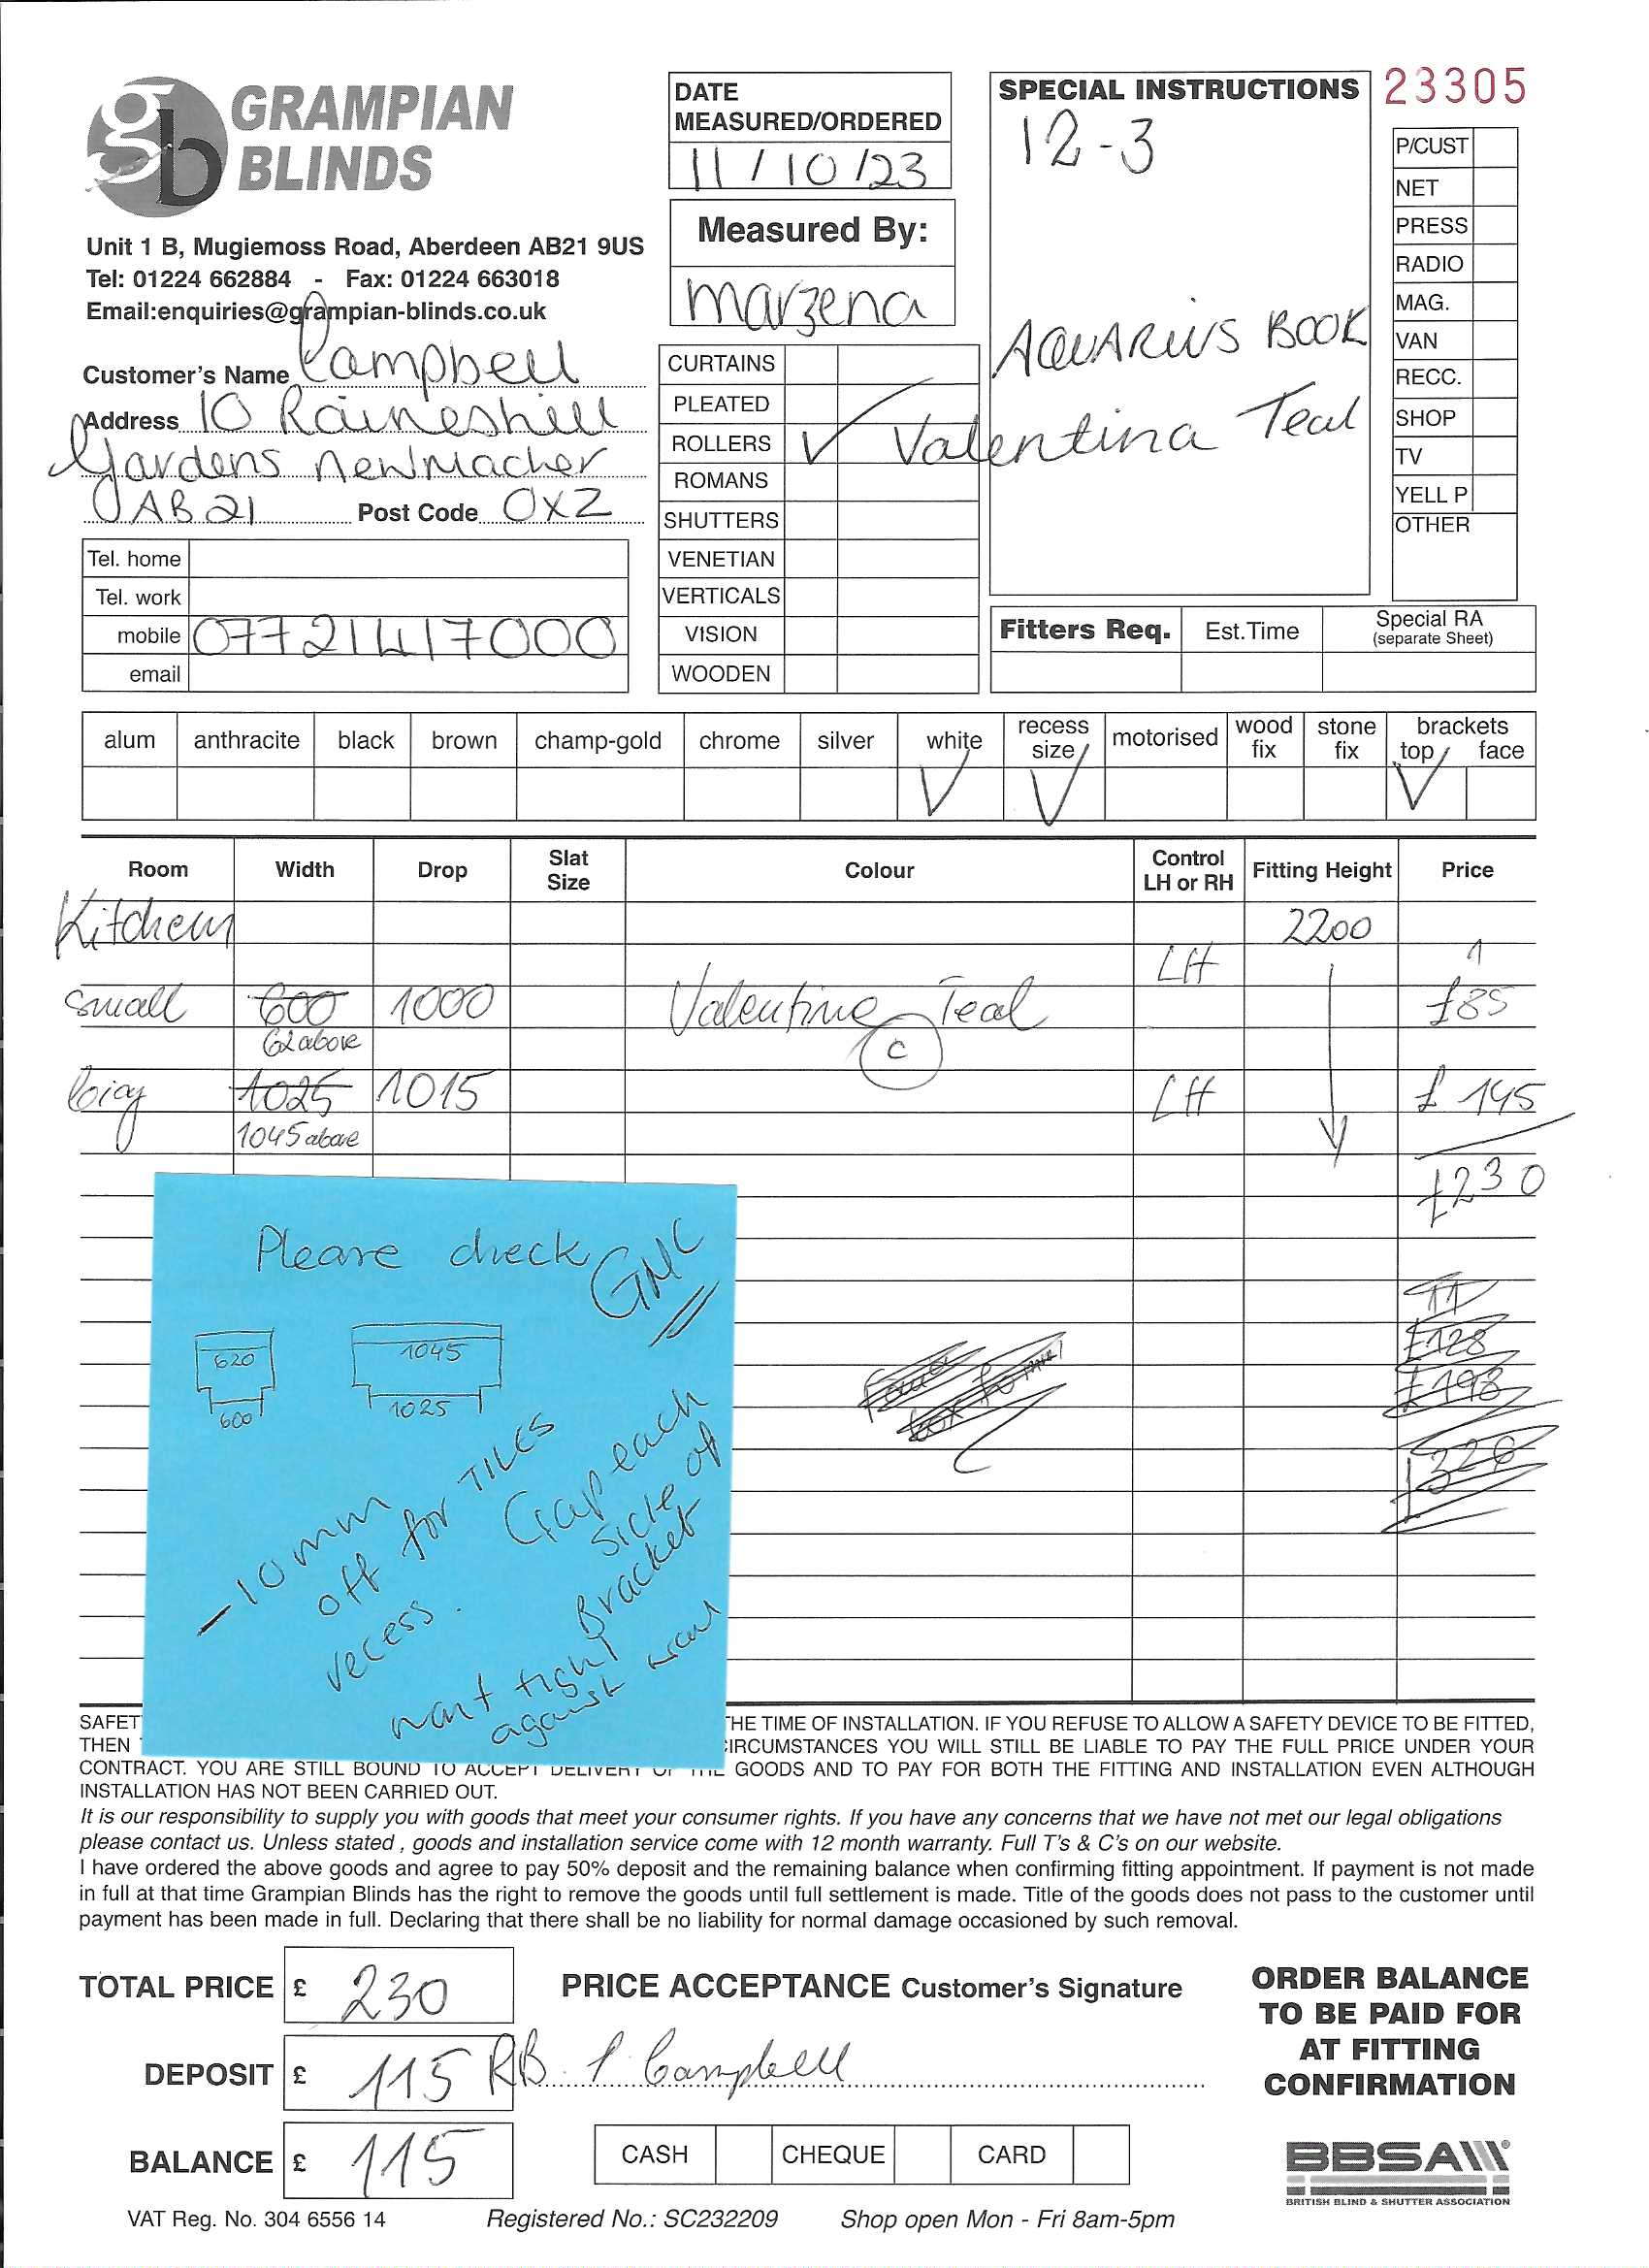 GRAMPIAN
BLINDS
Unit 1 B, Mugiemoss Road, Aberdeen AB21 9US
Tel: 01224 662884 - Fax: 01224 663018
Email:enquiries@grampian-blinds.co.uk
Customer's Name Campbell
Address 10 Raineshill
Gardens Newmacher
AB21 Post Code 0XZ
Tel. home
Tel. work
mobile 07721417000
email
DATE
MEASURED/ORDERED
11/10/23
Measured By:
marzena
CURTAINS
PLEATED
ROLLERS ✓
ROMANS
SHUTTERS
VENETIAN
VERTICALS
VISION
WOODEN
SPECIAL INSTRUCTIONS
12-3
AQUARIUS BOOK
Valentina Teal
23305
P/CUST
NET
PRESS
RADIO
MAG.
VAN
RECC.
SHOP
TV
YELL P
OTHER
Fitters Req. Est.Time Special RA
(separate Sheet)
alum anthracite black brown champ-gold chrome silver white recess size motorised wood fix stone fix brackets top face
✓ ✓ ✓
Room Width Drop Slat Size Colour Control LH or RH Fitting Height Price
Kitchen 2200
LH
small 600 1000 Valentine Teal £85
62 above C
big 1025 1015 LH £145
1045 above
£230
£128
£198
£326
Please check
GMC
620 1045
600 1025
- 10mm
off for TILES
recess.
Gap each
side of
Bracket
want tight
against wall
SAFET
HE TIME OF INSTALLATION. IF YOU REFUSE TO ALLOW A SAFETY DEVICE TO BE FITTED,
THEN
IRCUMSTANCES YOU WILL STILL BE LIABLE TO PAY THE FULL PRICE UNDER YOUR
CONTRACT. YOU ARE STILL BOUND TO ACCEPT DELIVERY OF THE GOODS AND TO PAY FOR BOTH THE FITTING AND INSTALLATION EVEN ALTHOUGH
INSTALLATION HAS NOT BEEN CARRIED OUT.
It is our responsibility to supply you with goods that meet your consumer rights. If you have any concerns that we have not met our legal obligations
please contact us. Unless stated , goods and installation service come with 12 month warranty. Full T's & C's on our website.
I have ordered the above goods and agree to pay 50% deposit and the remaining balance when confirming fitting appointment. If payment is not made
in full at that time Grampian Blinds has the right to remove the goods until full settlement is made. Title of the goods does not pass to the customer until
payment has been made in full. Declaring that there shall be no liability for normal damage occasioned by such removal.
TOTAL PRICE £ 230
PRICE ACCEPTANCE Customer's Signature
DEPOSIT £ 115 RB P Campbell
BALANCE £ 115
CASH CHEQUE CARD
ORDER BALANCE
TO BE PAID FOR
AT FITTING
CONFIRMATION
BBSA
BRITISH BLIND & SHUTTER ASSOCIATION
VAT Reg. No. 304 6556 14 Registered No.: SC232209 Shop open Mon - Fri 8am-5pm